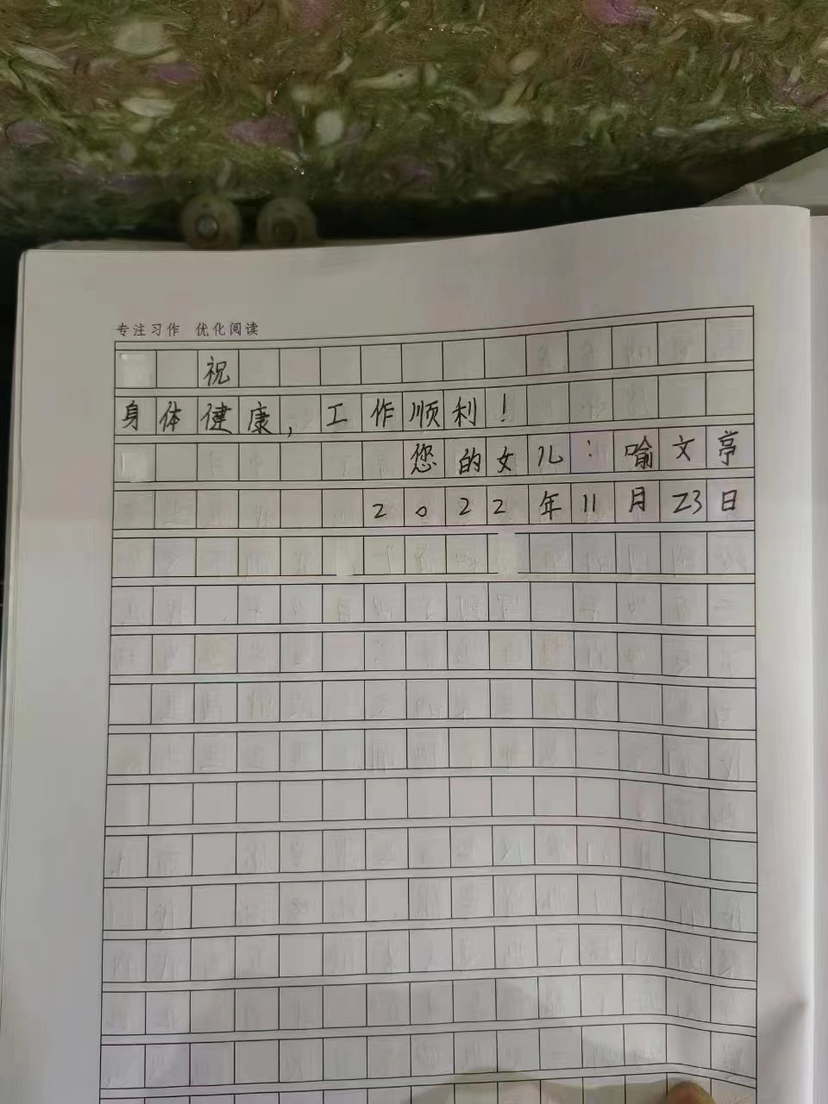 专注习作 优化阅读
祝
身体健康,工作顺利!
您的女儿:喻文亭
2022年11月23日